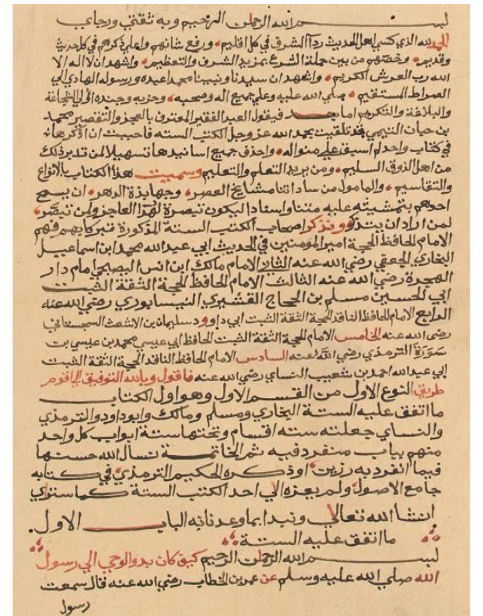 بسم الله الرحمن الرحيم وبه ثقتي ورجاي
الحمد لله الذي كسى اهل الحديث رداء الشرف في كل اقليم ورفع شانهم واعلى ذكرهم في كل حديث
وقديم وخصهم من بين حملة الشرع بمزيد الشرف والتعظيم واشهد ان لا اله الا
الله رب العرش الكريم واشهد ان سيدنا ونبينا محمدا عبده ورسوله الهادي الى
الصراط المستقيم صلى الله عليه وعلى جميع اله وصحبه وحزبه وجنده اولى الشجاعة
والبلاغة والتكريم اما بعد فيقول العبد الفقير المعترف بالعجز والتقصير محمد
بن حيات التتيمي قد تلقيت بحمد الله عز وجل الكتب الستة فاحببت ان اذكرها
في كتاب واحد لم اسبق على منواله واحذف جميع اسانيدها تسهيلا لمن تدبر ذلك
من اهل الذوق السليم ومن يريد التعلم والتعليم وسميت هذا الكتاب بالانواع
والتقاسيم والمامول من ساداتنا مشايخ العصر وجهابذة الدهر ان يسمح
احدهم بتمشيته عليه متنا واسنادا ليكون تبصرة لهذا العاجز ولمن تبصر
لمن اراد ان يتذكر ونذكر اصحاب الكتب الستة المذكورة تبركا بهم فهم
الامام الحافظ الحجة امير المومنين في الحديث ابي عبد الله محمد ابن اسماعيل
البخاري الجعفي رضي الله عنه الثاني الامام مالك ابن انس اليصبحي امام دار
الهجرة رضي الله عنه الثالث الامام الحافظ الحجة الثقة الثبت
ابي الحسين مسلم بن الحجاج القشيري النيسابوري رضي الله عنه
الرابع الامام الحافظ الناقد الحجة الثقة الثبت ابي داوود سليمان بن الاشعث السجستاني
رضي الله عنه الخامس الامام الحجة الثقة الثبت الحافظ ابي عيسى محمد بن عيسى بن
سورة الترمذي رضي الله عنه السادس الامام الحافظ الناقد الحجة الثقة الثبت
ابي عبد الله احمد بن شعيب النساي رضي الله عنه فاقول وبالله التوفيق الى اقوم
طريق النوع الاول من القسم الاول وهو اول الكتاب
ما اتفق عليه الستة البخاري ومسلم ومالك وابو داود والترمذي
والنساي جعلته ستة اقسام وتحتها ستة ابواب كل واحد
منهم بباب منفرد فيه ثم الخاتمة نسال الله حسنها
فيما انفرد به رزين او ذكره الحكيم الترمذي في كتابه
جامع الاصول ولم يعزه الى احد الكتب الستة كما ستراه
انشا الله تعالى ونبدا بما وعدنا به الباب الاول
ما اتفق عليه الستة
بسم الله الرحمن الرحيم كيف كان بدو الوحي الى رسول
الله صلى الله عليه وسلم عن عمر بن الخطاب رضي الله عنه قال سمعت
رسول